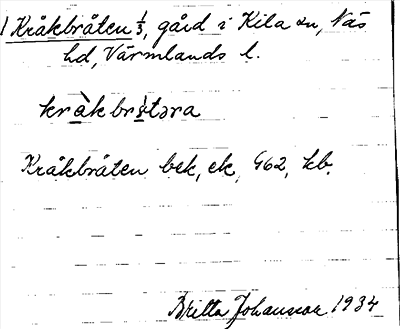 1 Kråkbråten 1/3, gård i Kila sn, Näs
hd, Värmlands l.
Kråkbråten bek, ek, 962, kb.
Britta Johansson 1934